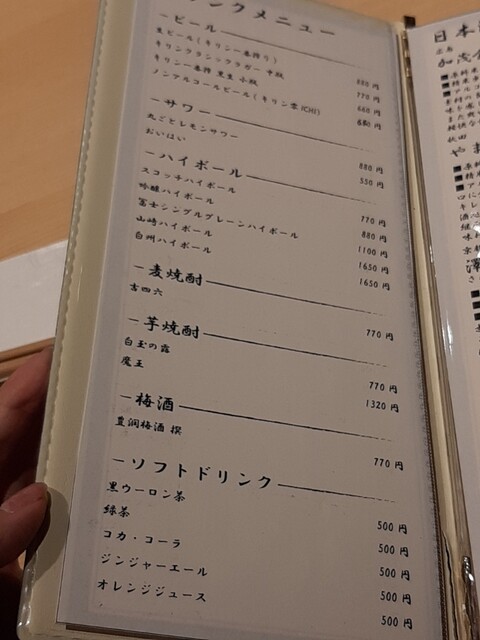 ンクメニュー
ービールー
生ビール(キリン一番搾り) 680円
キリンクラシックラガー 中瓶 770円
キリン一番搾 黒生 小瓶 660円
ノンアルコールビール(キリン零ICHI)
ーサワーー
丸ごとレモンサワー 880円
おいはい 550円
ーハイボールー
スコッチハイボール 770円
吟醸ハイボール 880円
富士シングルグレーンハイボール 1100円
山崎ハイボール 1650円
白州ハイボール 1650円
ー麦焼酎ー
吉四六 770円
ー芋焼酎ー
白玉の露 770円
魔王 1320円
ー梅酒ー
豊潤梅酒 撰 770円
ーソフトドリンクー
黒ウーロン茶 500円
緑茶 500円
コカ・コーラ 500円
ジンジャーエール 500円
オレンジジュース 500円
日本
広島
加茂